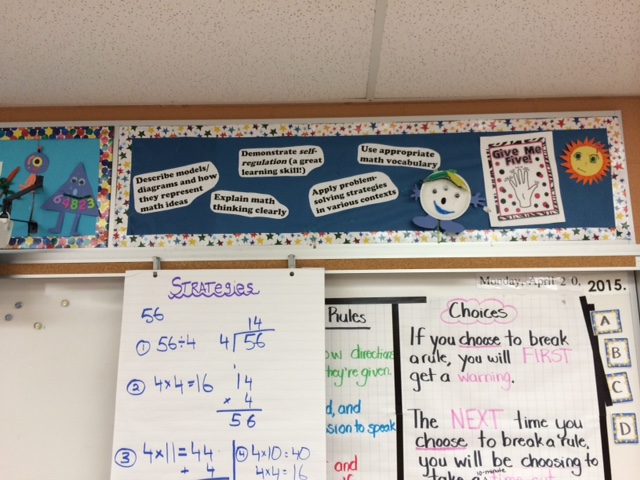 04823
Describe models/
diagrams and how
they represent
math ideas
Demonstrate self-
regulation (a great
learning skill!)
Explain math
thinking clearly
Use appropriate
math vocabulary
Apply problem-
solving strategies
in various contexts
Give Me
Five!
Monday, April 20,
2015.
STRATEGIES
56
① 56÷4
14
4)56
② 4×4=16
1
14
× 4
56
③ 4×11=44
+ 4
④ 4×10=40
4×4=16
Rules
directions
they're given.
and
to speak
and
Choices
If you choose to break
a rule, you will FIRST
get a warning.
The NEXT time you
choose to break a rule,
you will be choosing to
take a 10-minute time-out
A
B
C
D